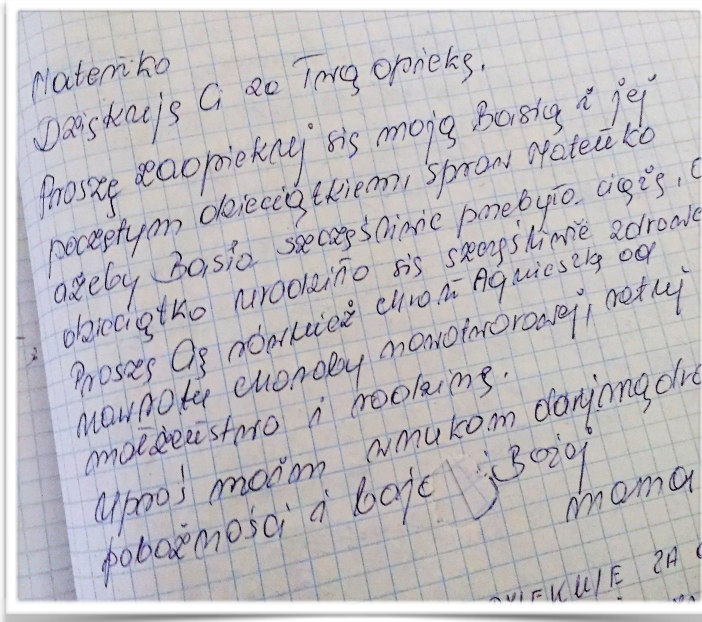 Mateńko
Dziękuję Ci za Twą opiekę.
Proszę zaopiekuj się moją Basią i jej
poczętym dzieciątkiem, spraw Mateńko
ażeby Basia szczęśliwie przebyła ciążę,
dzieciątko urodziło się szczęśliwie zdrowe
Proszę Cię również chroń Agnieszkę od
nawrotu choroby nowotworowej, ratuj
małżeństwo i rodzinę.
Uproś moim wnukom dar
pobożności i Bożej
mama
ZA